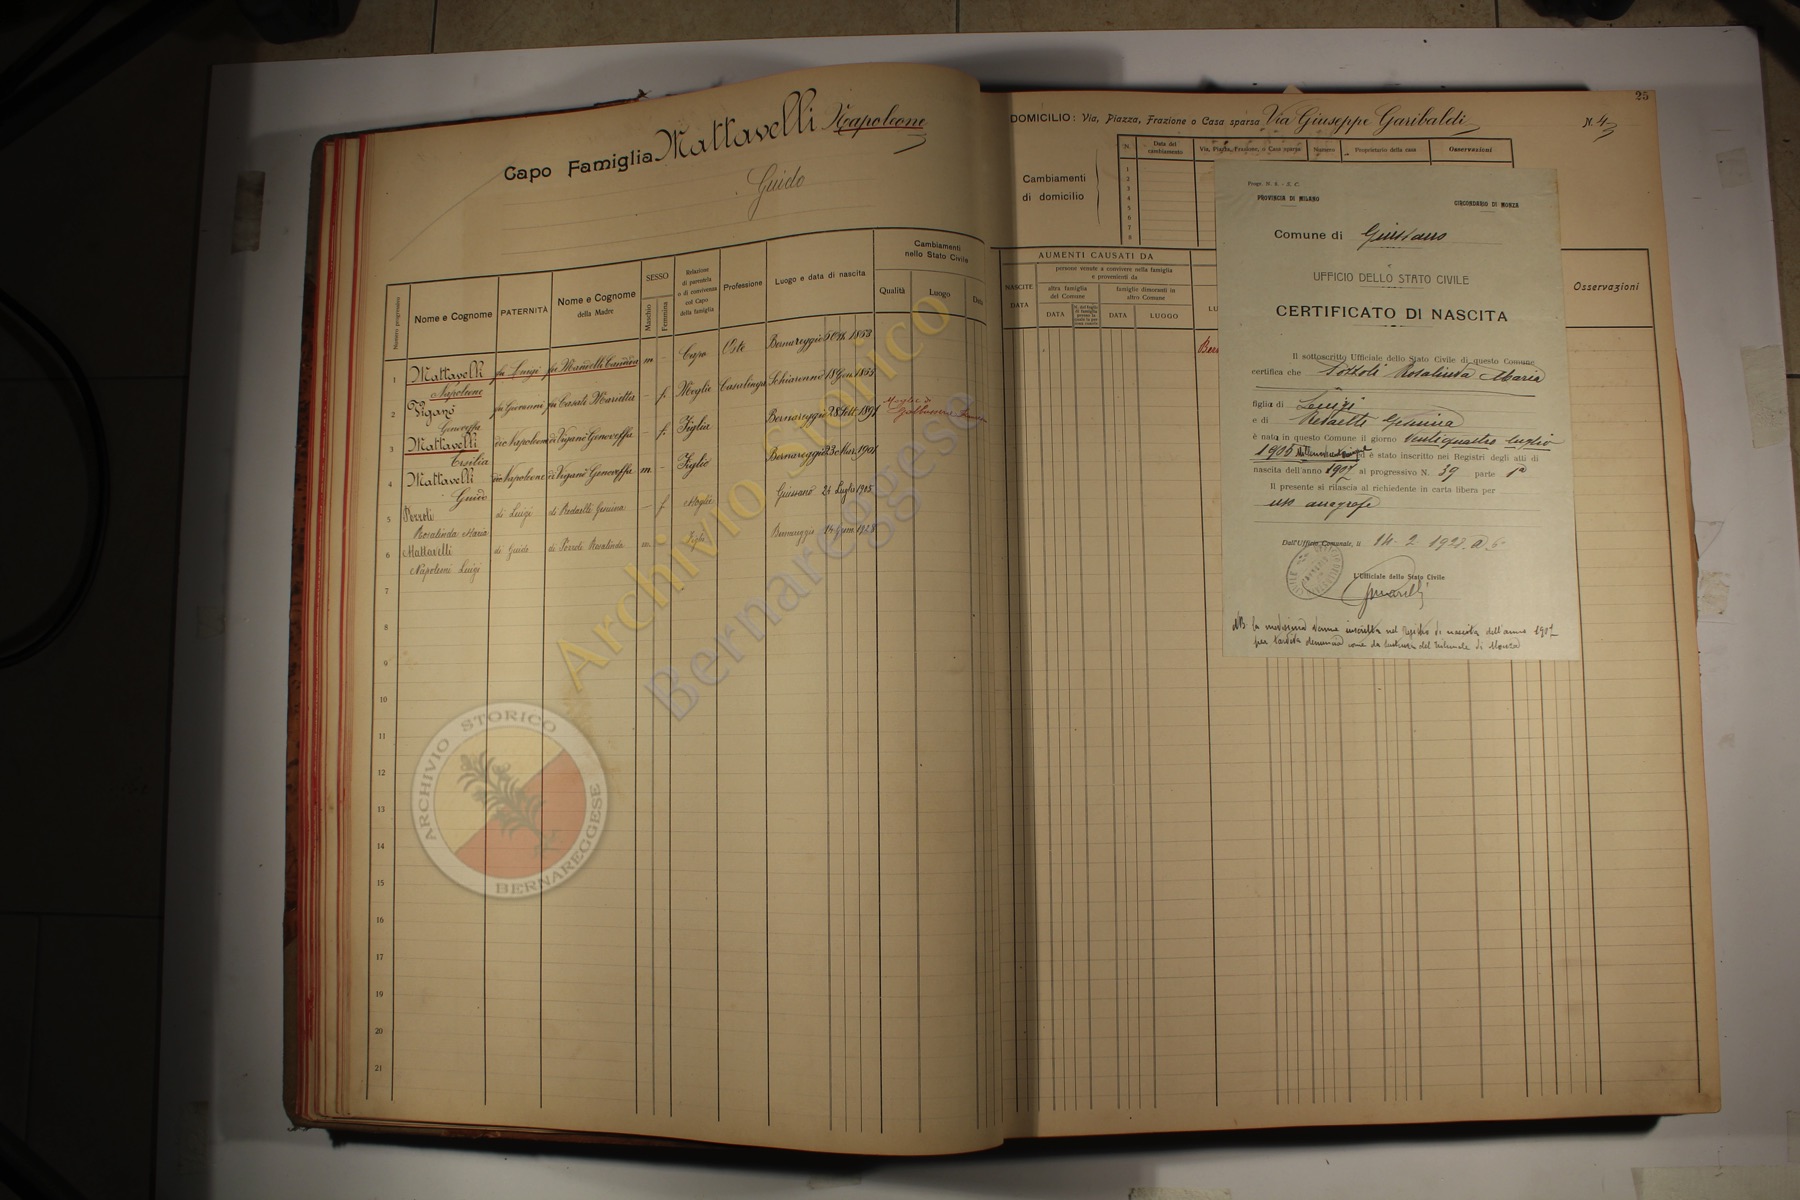 Capo Famiglia Mattavelli Napoleone
Guido
Numero progressivo
Nome e Cognome
PATERNITÀ
Nome e Cognome
della Madre
SESSO
Maschio
Femmina
Relazione
di parentela
o di convivenza
col Capo
della famiglia
Professione
Luogo e data di nascita
Cambiamenti
nello Stato Civile
Qualità
Luogo
Data
1 Mattavelli fu Luigi fu Mandelli m - Capo Oste Bernareggio 1853
Napoleone
2 Viganò fu Giovanni fu Casati Marietta - f. Moglie Casalinga 18 Gen. 1859
Genoveffa
3 Mattavelli di Napoleone di Viganò Genoveffa - f. Figlia Bernareggio 28 1897 Moglie di
Ersilia
4 Mattavelli di Napoleone di Viganò Genoveffa m - Figlio Bernareggio 23 Mar. 1901
Guido
5 Pozzoli di Luigi di Redaelli Gesuina - f Moglie Giussano 24 Luglio 1905
Rosalinda Maria
6 Mattavelli di Guido di Pozzoli Rosalinda m - Figlio Bernareggio 14 1928
Napoleone Luigi
7
8
9
10
11
12
13
14
15
16
17
18
19
20
21
25
DOMICILIO: Via, Piazza, Frazione o Casa sparsa Via Giuseppe Garibaldi N. 4
Cambiamenti
di domicilio
N.
Data del
cambiamento
Via, Piazza, Frazione, o Casa sparsa
Numero
Proprietario della casa
Osservazioni
1
2
3
4
5
6
7
8
AUMENTI CAUSATI DA
NASCITE
DATA
persone venute a convivere nella famiglia
e provenienti da
altra famiglia
del Comune
famiglie dimoranti in
altro Comune
DATA
DATA
LUOGO
LU
Ber
Osservazioni
PROVINCIA DI MILANO
CIRCONDARIO DI MONZA
Comune di Giussano
UFFICIO DELLO STATO CIVILE
CERTIFICATO DI NASCITA
Il sottoscritto Ufficiale dello Stato Civile di questo Comune
certifica che Pozzoli Rosalinda Maria
figlia di Luigi
e di Redaelli Gesuina
è nata in questo Comune il giorno ventiquattro luglio
1905 si è stato inscritto nei Registri degli atti di
nascita dell'anno 1907 al progressivo N. 39 parte 1ª
Il presente si rilascia al richiedente in carta libera per
uso anagrafe
Dall'Ufficio Comunale, li 14. 2. 1928. A. 6°
L'Ufficiale dello Stato Civile
NB la medesima venne inscritta nel Registro di nascita dell'anno 1907
per tardiva denuncia come da sentenza del Tribunale di Monza
Archivio Storico
Bernareggese
ARCHIVIO STORICO
BERNAREGGESE